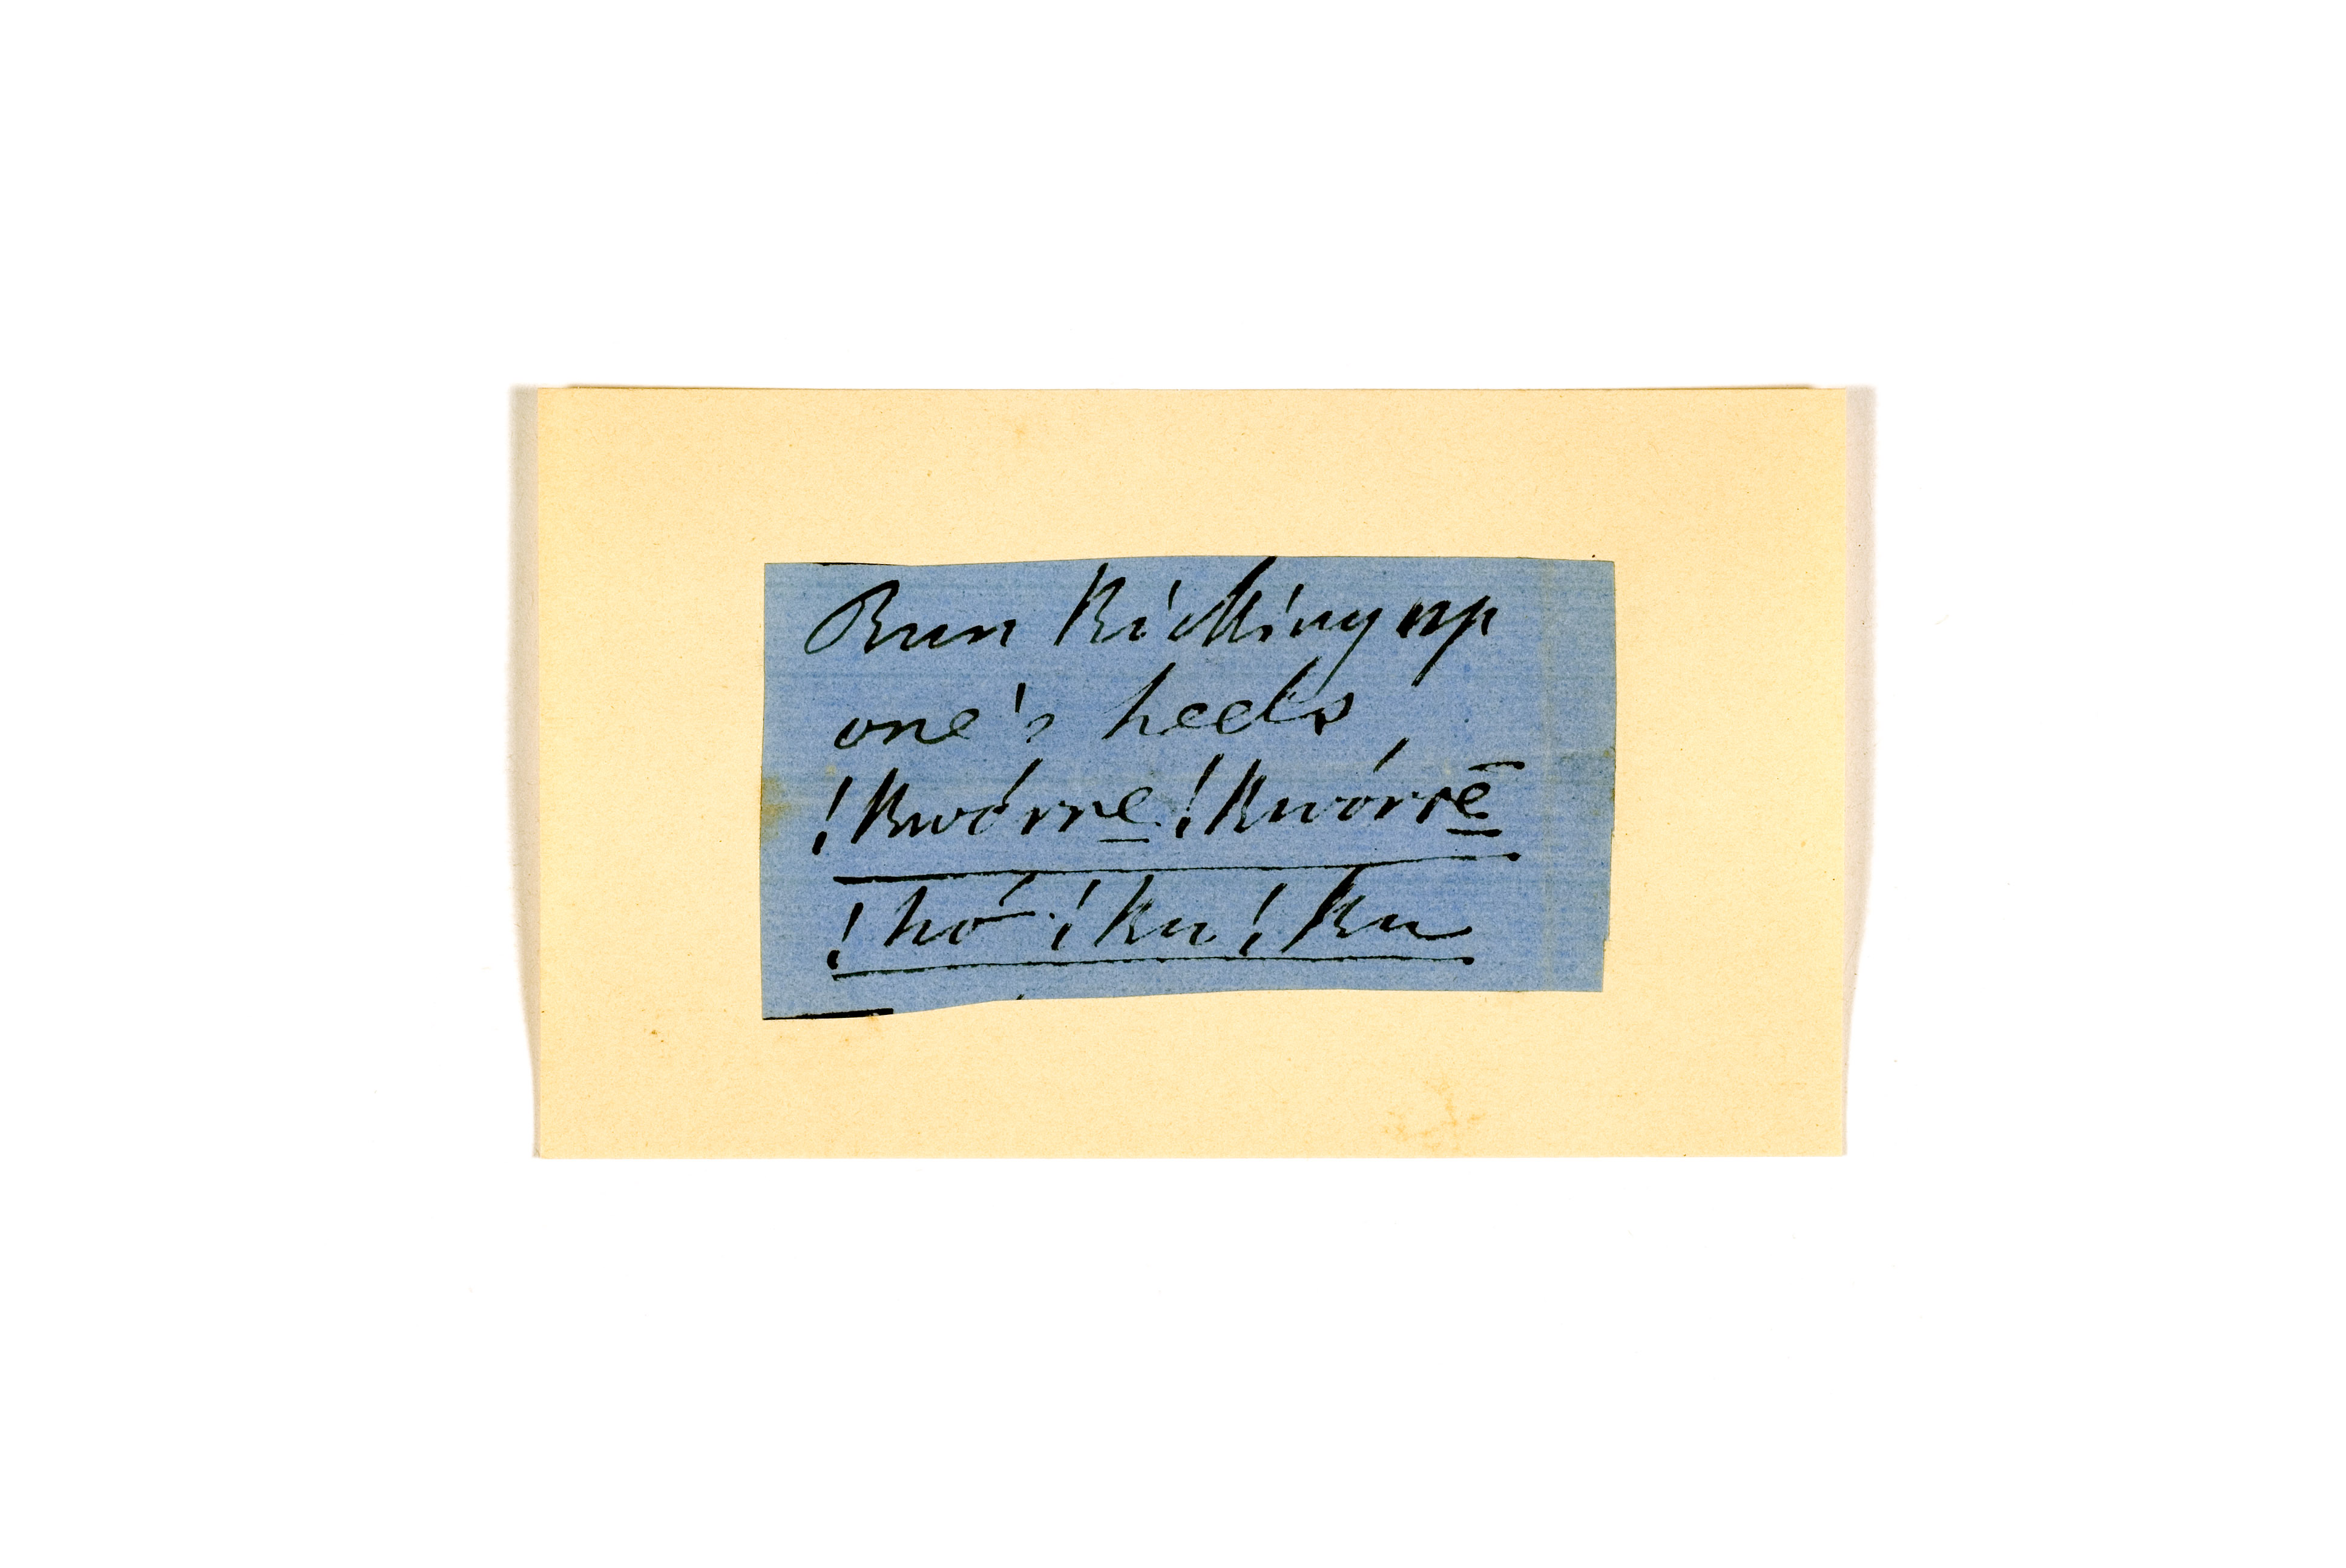 Run kicking up
one's heels
!kwórre̱ !kwórrē̱
!hó !ku !ku